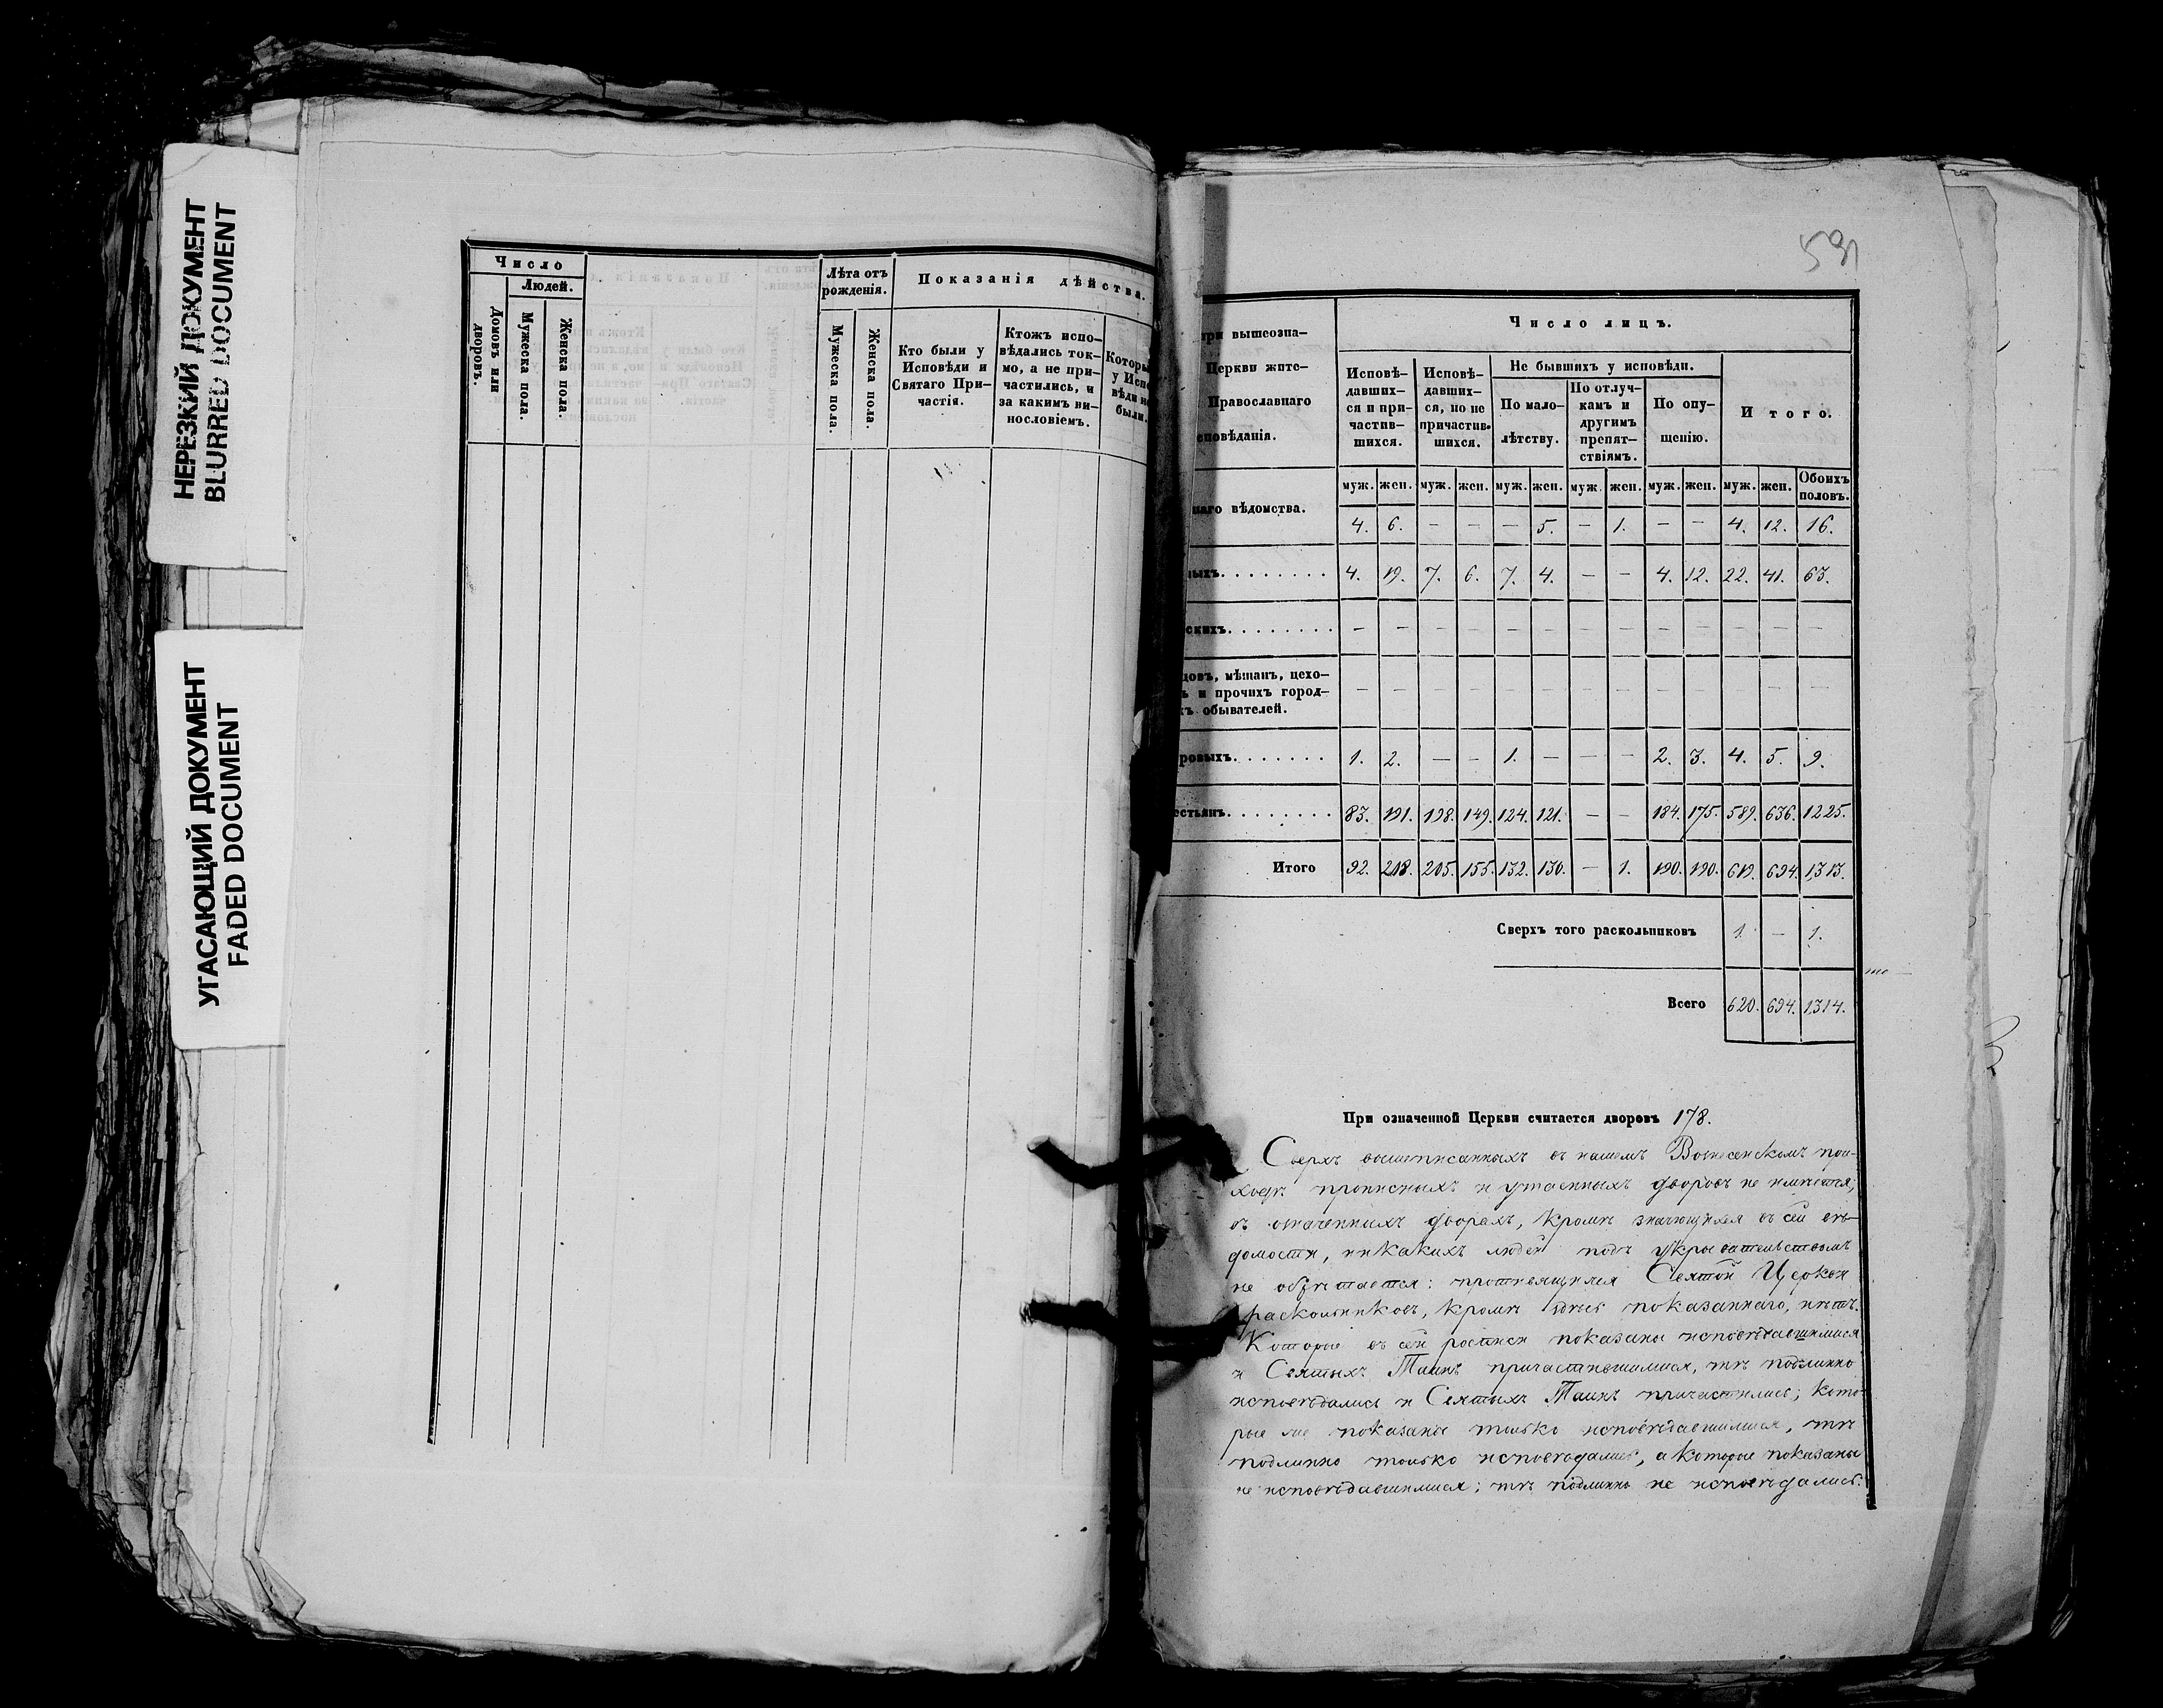 НЕРЕЗКИЙ ДОКУМЕНТ
BLURRED DOCUMENT
УГАСАЮЩИЙ ДОКУМЕНТ
FADED DOCUMENT
Число
Домовъ или дворовъ.
Людей.
Мужеска пола.
Женска пола.
Лѣта отъ рожденія.
Мужеска пола.
Женска пола.
Показанія дѣйства.
Кто были у
Исповѣди и
Святаго При-
частія.
Ктожъ испо-
вѣдались ток-
мо, а не при-
частились, и
за какимъ ви-
нословіемъ.
Которы
у Испо
вѣди не
были.
591
при вышеозна-
Церкви жите-
Православнаго
сповѣданія.
Число лицъ.
Исповѣ-
давших-
ся и при-
частив-
шихся.
Исповѣ-
давших-
ся, но не
причастив-
шихся.
Не бывшихъ у исповѣди.
По мало-
лѣтству.
По отлуч-
камъ и
другимъ
препят-
ствіямъ.
По опу-
щенію.
Итого.
муж. жен. муж. жен. муж. жен. муж. жен. муж. жен. муж. жен. Обоихъ половъ.
наго вѣдомства. 4. 6. — — — 5. — 1. — — 4. 12. 16.
ныхъ. 4. 19. 7. 6. 7. 4. — — 4. 12. 22. 41. 63.
скихъ. — — — — — — — — — — — — —
цовъ, мѣщан, цехо-
ъ и прочихъ город-
хъ обывателей. — — — — — — — — — — — — —
ровыхъ. 1. 2. — — 1. — — — 2. 3. 4. 5. 9.
естьянъ. 83. 191. 198. 149. 124. 121. — — 184. 175. 589. 636. 1225.
Итого 92. 218. 205. 155. 132. 130. — 1. 190. 190. 619. 694. 1,313.
Сверхъ того раскольниковъ 1. — 1.
Всего 620. 694. 1,314.
При означенной Церкви считается дворовъ 178.
Сверхъ вышеписанныхъ въ нашемъ Вознесенскомъ при-
ходѣ прописныхъ и утаенныхъ дворовъ не имѣется;
въ означенныхъ дворахъ, кромѣ значущихся въ сей вѣ-
домости, никакихъ людей подъ укрывательствомъ
не обрѣтается: противящихся Святой Церкви
раскольниковъ, кромѣ здѣсь показаннаго, нѣтъ.
Которые въ сей росписи показаны исповѣдавшимися
и Святыхъ Таинъ причастившимися, тѣ подлинно
исповѣдались и Святыхъ Таинъ причастились; кото-
рые же показаны только исповѣдавшимися, тѣ
подлинно только исповѣдались, а которые показаны
не исповѣдавшимися; тѣ подлинно не исповѣдались.